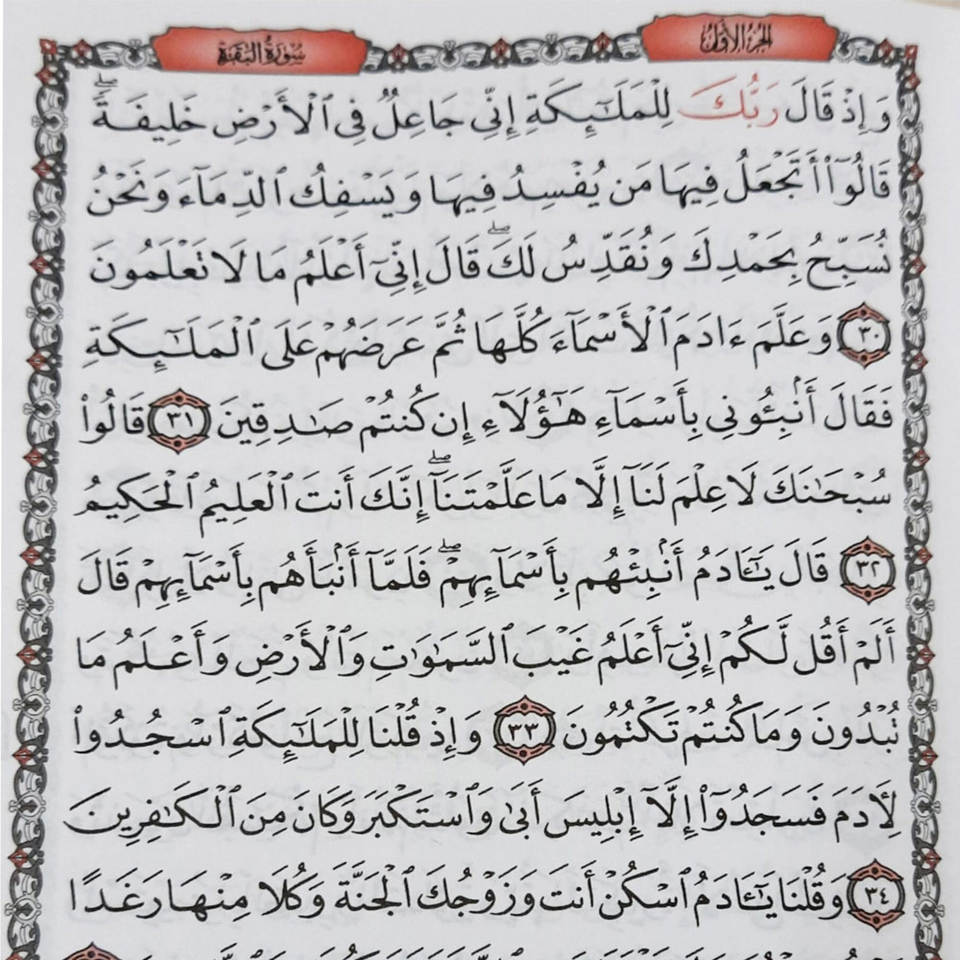 الجزء الأول
سورة البقرة
وَإِذْ قَالَ رَبُّكَ لِلْمَلَٰٓئِكَةِ إِنِّي جَاعِلٌ فِي ٱلْأَرْضِ خَلِيفَةًۖ
قَالُوٓا۟ أَتَجْعَلُ فِيهَا مَن يُفْسِدُ فِيهَا وَيَسْفِكُ ٱلدِّمَآءَ وَنَحْنُ
نُسَبِّحُ بِحَمْدِكَ وَنُقَدِّسُ لَكَۖ قَالَ إِنِّيٓ أَعْلَمُ مَا لَا تَعْلَمُونَ
٣٠ وَعَلَّمَ ءَادَمَ ٱلْأَسْمَآءَ كُلَّهَا ثُمَّ عَرَضَهُمْ عَلَى ٱلْمَلَٰٓئِكَةِ
فَقَالَ أَنۢبِـُٔونِي بِأَسْمَآءِ هَٰٓؤُلَآءِ إِن كُنتُمْ صَٰدِقِينَ ٣١ قَالُوا۟
سُبْحَٰنَكَ لَا عِلْمَ لَنَآ إِلَّا مَا عَلَّمْتَنَآۖ إِنَّكَ أَنتَ ٱلْعَلِيمُ ٱلْحَكِيمُ
٣٢ قَالَ يَٰٓـَٔادَمُ أَنۢبِئْهُم بِأَسْمَآئِهِمْۖ فَلَمَّآ أَنۢبَأَهُم بِأَسْمَآئِهِمْ قَالَ
أَلَمْ أَقُل لَّكُمْ إِنِّيٓ أَعْلَمُ غَيْبَ ٱلسَّمَٰوَٰتِ وَٱلْأَرْضِ وَأَعْلَمُ مَا
تُبْدُونَ وَمَا كُنتُمْ تَكْتُمُونَ ٣٣ وَإِذْ قُلْنَا لِلْمَلَٰٓئِكَةِ ٱسْجُدُوا۟
لِءَادَمَ فَسَجَدُوٓا۟ إِلَّآ إِبْلِيسَ أَبَىٰ وَٱسْتَكْبَرَ وَكَانَ مِنَ ٱلْكَٰفِرِينَ
٣٤ وَقُلْنَا يَٰٓـَٔادَمُ ٱسْكُنْ أَنتَ وَزَوْجُكَ ٱلْجَنَّةَ وَكُلَا مِنْهَا رَغَدًا